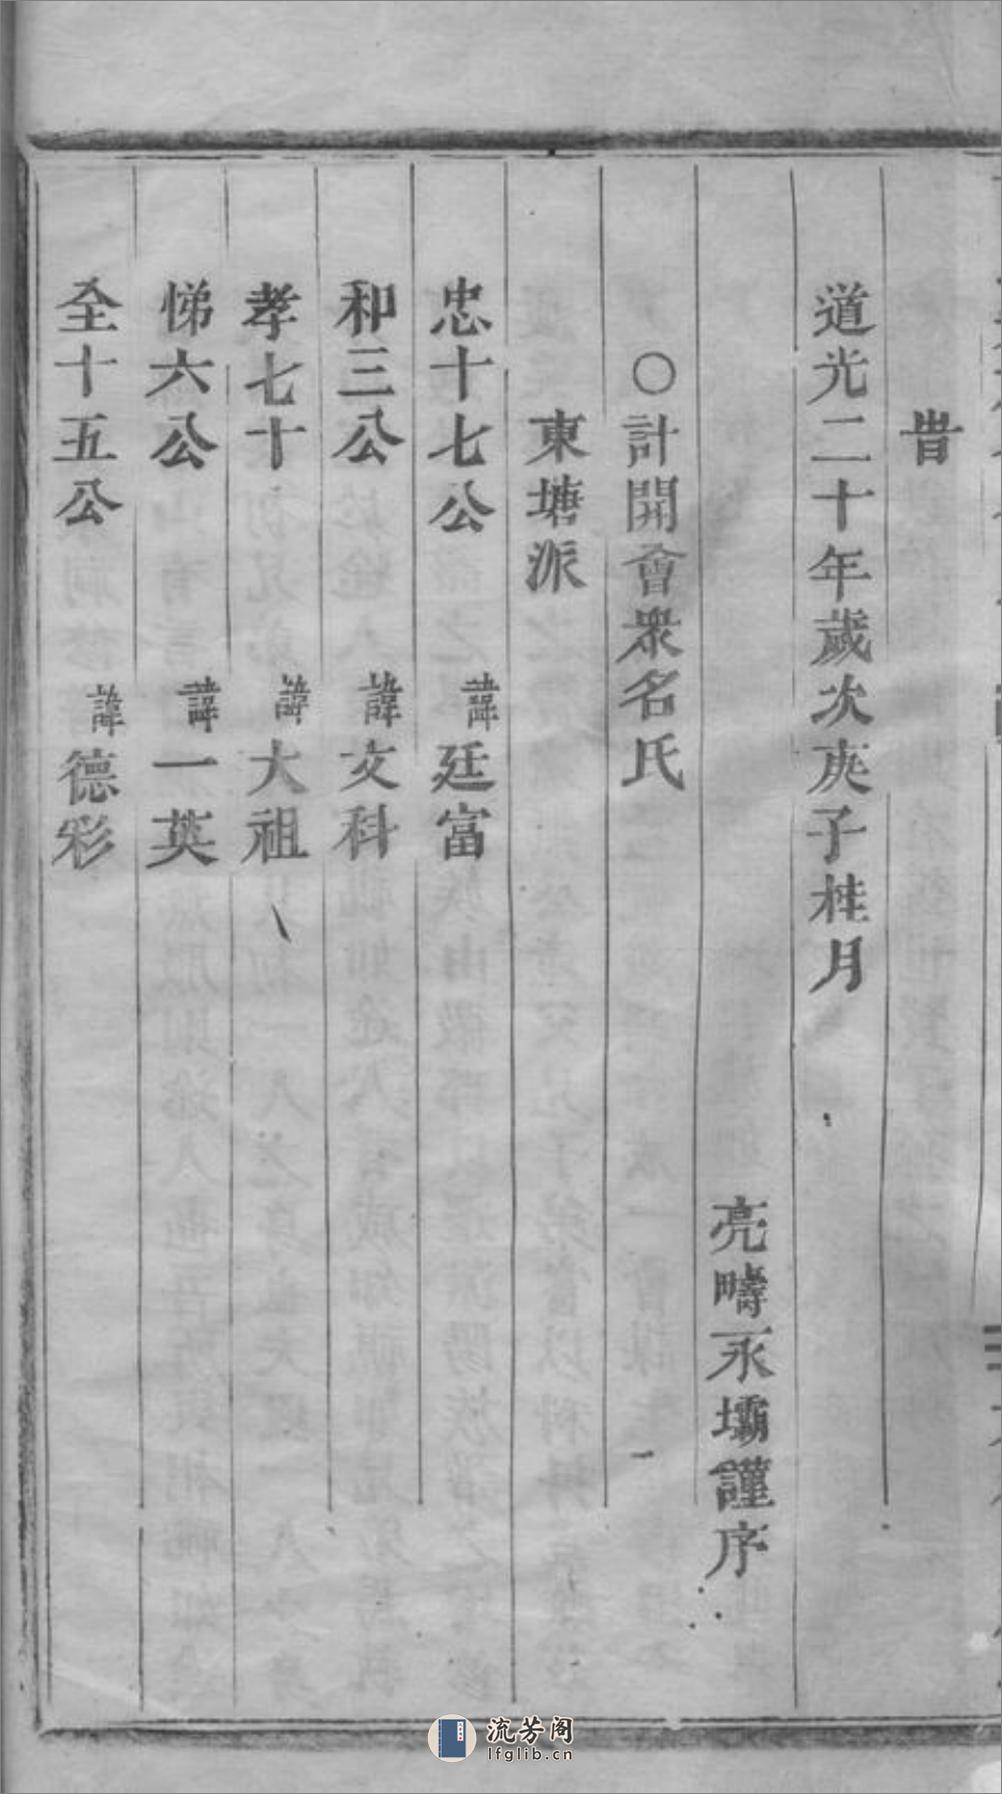 旹
道光二十年歲次庚子桂月
亮疇永壩謹序
○計開會衆名氏
東塘派
忠十七公 諱廷富
和三公 諱文科
孝七十 諱大祖
悌六公 諱一英
全十五公 諱德彩
流芳阁
lfglib.cn